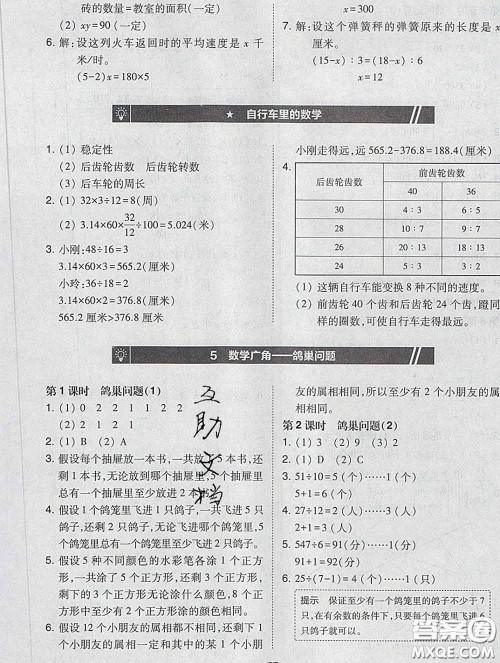 砖的数量=教室的面积(一定)
(2) xy=90(一定)
6. 解:设这列火车返回时的平均速度是 x 千
米/时。
(5-2)x=180×5
x=300
7. 解:设这个弹簧秤的弹簧原来的长度是
(15-x):3=(18-x):6
x=12
★ 自行车里的数学
1. (1) 稳定性
(2) 后齿轮齿数 后齿轮转数
(3) 后车轮的周长
2. (1) 32×3÷12=8(周)
(2) 3.14×60×32/12÷100=5.024(米)
3. 小刚:48÷16=3
3.14×60×3=565.2(厘米)
小玲:36÷18=2
3.14×60×2=376.8(厘米)
565.2厘米>376.8厘米
小刚走得远,远 565.2-376.8=188.4(厘米)
4.
后齿轮齿数 前齿轮齿数
40 36
30 4:3 6:5
28 10:7 9:7
26 20:13 18:13
24 5:3 3:2
(1) 这辆自行车能变换 8 种不同的速度。
(2) 前齿轮 40 个齿和后齿轮 24 个齿,蹬同
样的圈数,可使自行车走得最远。
5 数学广角——鸽巢问题
第 1 课时 鸽巢问题(1)
1. (1) 0 2 2 1 1 2 2
(2) 1 2 2
2. (1) B (2) A
3. 假设每个抽屉放一本书,一共放 5 本书,还
剩 1 本书,无论放到哪个抽屉里,5 个抽屉里
总有一个抽屉里至少放进 2 本书。
4. 假设 1 个鸽笼里飞进 1 只鸽子,一共飞进 5 只
鸽子,还剩 2 只鸽子,无论飞进哪个鸽笼里,5
个鸽笼里总有一个鸽笼里至少飞进 2 只鸽子。
5. 假设 5 种不同颜色的水彩笔各涂 1 个正方
形,一共涂了 5 个正方形,还剩 3 个正方形,
剩下的 3 个正方形无论涂什么颜色,8 个正
方形中至少有 2 个正方形涂的颜色相同。
6. 假设 12 个小朋友的属相都不相同,还剩 1
个小朋友的属相一定和前面的某个小朋
友的属相相同。所以至少有 2 个小朋友的
属相相同。
第 2 课时 鸽巢问题(2)
1. (1) 3 (2) 9 (3) 2
2. (1) D (2) C
3. 51÷10=5(个)……1(个)
5+1=6(个)
4. 27÷12=2(人)……3(人)
2+1=3(人)
5. 547÷6=91(分)……1(分)
91+1=92(分)
6. 25÷(7-1)=4(个)……1(只)
提示 保证至少有一个鸽笼里的鸽子不少于 7
只,在有余数的条件下,只要每个鸽笼里飞进 6
只鸽子就可以。
互助文档
答案圈
MXQE.COM